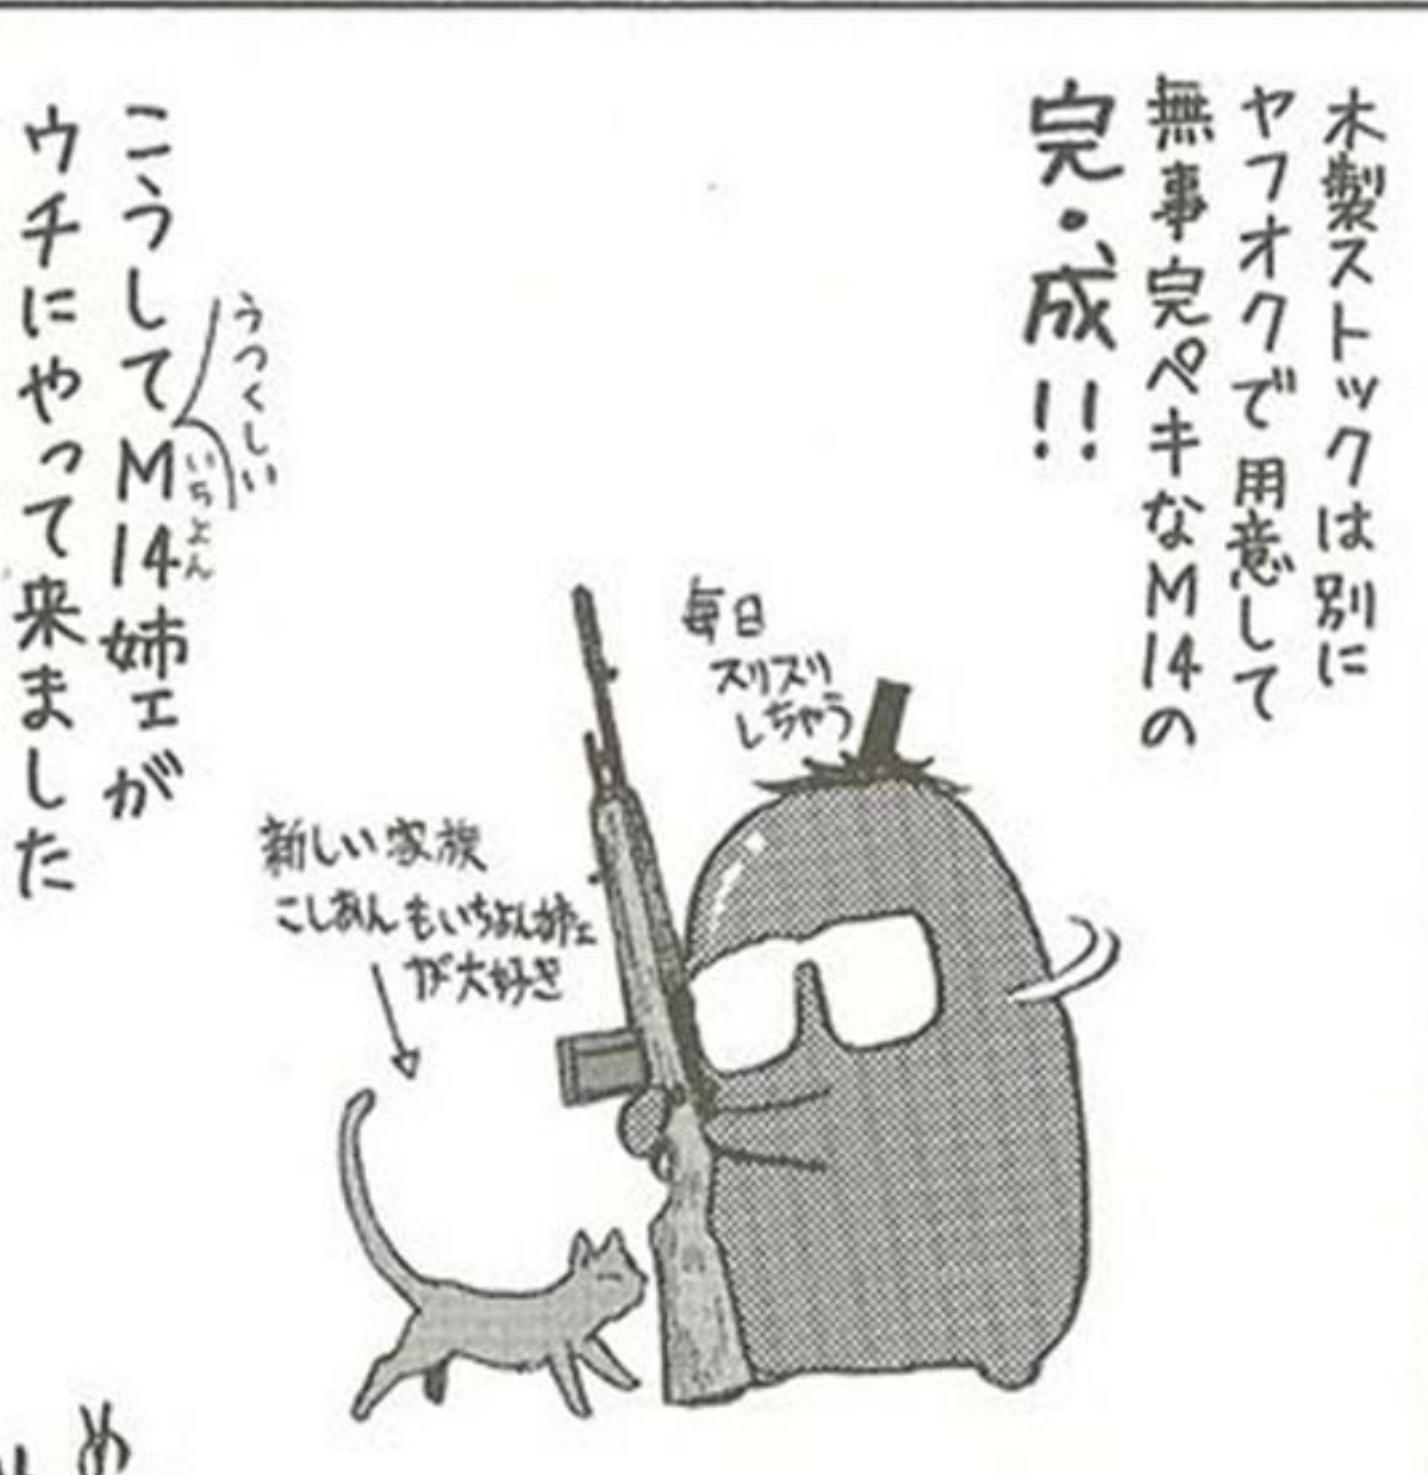 木製ストックは別に
ヤフオクで用意して
無事完ペキなM14の
完・成!!
毎日
スリスリ
しちゃう
新しい家族
こしあんもいちよん姉ェ
が大好き
うつくしい
いちよん
こうしてM14姉ェが
ウチにやって来ました
め